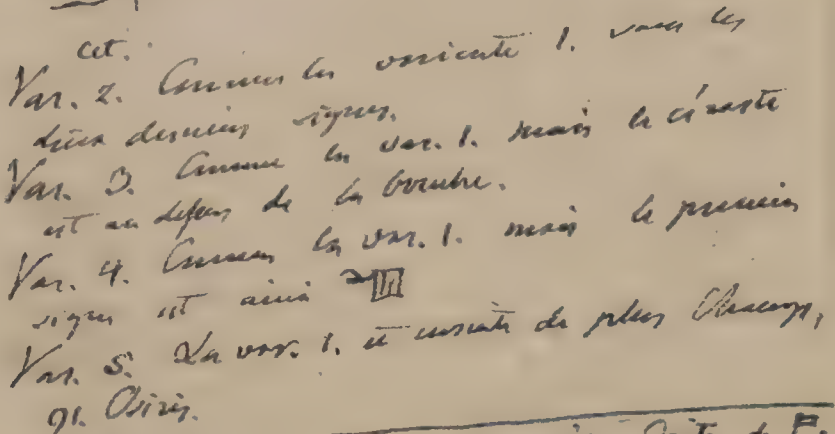 cet.
Var. 2. Comme la variante 1. sans les
deux derniers signes.
Var. 3. Comme la var. 1. mais le céraste
est au dessus de la bouche.
Var. 4. Comme la var. 1. mais le premier
signe est ainsi
Var. 5. La var. 1. et ensuite de plus
91. Osiris.